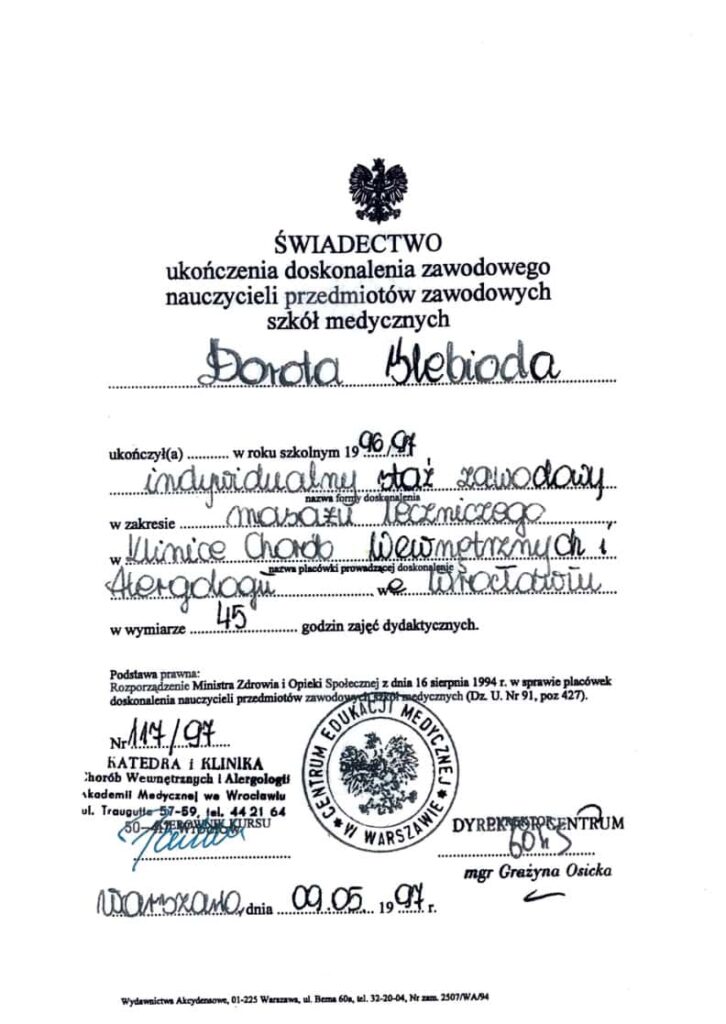 ŚWIADECTWO
ukończenia doskonalenia zawodowego
nauczycieli przedmiotów zawodowych
szkół medycznych
Dorota Blebioda
ukończył(a) .......... w roku szkolnym 1996/97
indywidualny staż zawodowy
nazwa formy doskonalenia
w zakresie masażu leczniczego
w Klinice Chorób Wewnętrznych i
nazwa placówki prowadzącej doskonalenie
Alergologii we Wrocławiu
w wymiarze 45 godzin zajęć dydaktycznych.
Podstawa prawna:
Rozporządzenie Ministra Zdrowia i Opieki Społecznej z dnia 16 sierpnia 1994 r. w sprawie placówek
doskonalenia nauczycieli przedmiotów zawodowych szkół medycznych (Dz. U. Nr 91, poz 427).
Nr 117/97
KATEDRA i KLINIKA
Chorób Wewnętrznych i Alergologii
Akademii Medycznej we Wrocławiu
ul. Traugutta 57-59, tel. 44 21 64
KIEROWNIK KURSU
CENTRUM EDUKACJI MEDYCZNEJ
W WARSZAWIE
DYREKTOR CENTRUM
mgr Grażyna Osicka
Warszawa, dnia 09.05. 1997 r.
Wydawnictwa Akcydensowe, 01-225 Warszawa, ul. Bema 60a, tel. 32-20-04, Nr zam. 2507/WA/94